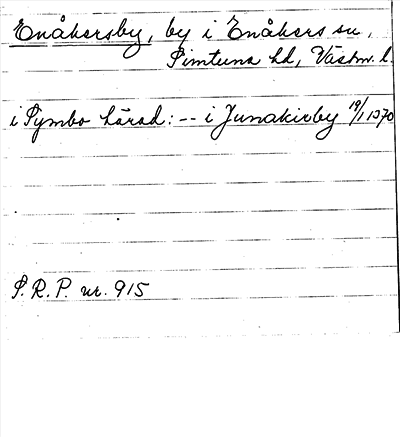 Enåkersby, by i Enåkers sn,
Simtuna hd, Västm. l.
i Symbo härad: -- i Junakirby 19/1 1370
S.R.P. nr. 915